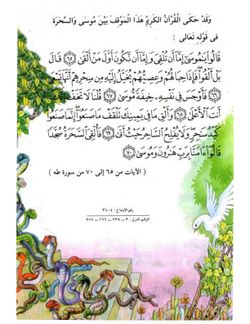 وَقَدْ حَكَى الْقُرْآنُ الْكَرِيمُ هَذَا الْمَوْقِفَ بَيْنَ مُوسَى وَالسَّحَرَةِ
فِى قَوْلِهِ تَعَالَى :
قَالُوا يَٰمُوسَىٰٓ إِمَّآ أَن تُلْقِىَ وَإِمَّآ أَن نَّكُونَ أَوَّلَ مَنْ أَلْقَىٰ ﴿٦٥﴾ قَالَ
بَلْ أَلْقُوا۟ فَإِذَا حِبَالُهُمْ وَعِصِيُّهُمْ يُخَيَّلُ إِلَيْهِ مِن سِحْرِهِمْ أَنَّهَا تَسْعَىٰ
﴿٦٦﴾ فَأَوْجَسَ فِى نَفْسِهِۦ خِيفَةً مُّوسَىٰ ﴿٦٧﴾ قُلْنَا لَا تَخَفْ إِنَّكَ
أَنتَ ٱلْأَعْلَىٰ ﴿٦٨﴾ وَأَلْقِ مَا فِى يَمِينِكَ تَلْقَفْ مَا صَنَعُوٓا۟ إِنَّمَا صَنَعُوا۟
كَيْدُ سَٰحِرٍ وَلَا يُفْلِحُ ٱلسَّاحِرُ حَيْثُ أَتَىٰ ﴿٦٩﴾ فَأُلْقِىَ ٱلسَّحَرَةُ سُجَّدًا
قَالُوٓا۟ ءَامَنَّا بِرَبِّ هَٰرُونَ وَمُوسَىٰ ﴿٧٠﴾
( الآيات من ٦٥ إلى ٧٠ من سورة طه )
رقم الإيداع :
الترقيم الدولى :